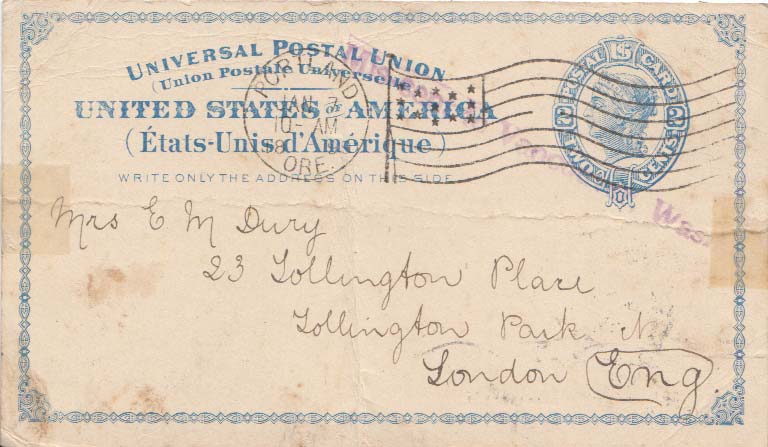 UNIVERSAL POSTAL UNION
(Union Postale Universelle)
UNITED STATES OF AMERICA
(États-Unis d'Amérique)
WRITE ONLY THE ADDRESS ON THIS SIDE
PORTLAND
JAN 7
10- AM
ORE.
U.S. POSTAL CARD
TWO CENTS
2 2
Wash
Mrs E M Dury
23 Tollington Place
Tollington Park N.
London Eng.